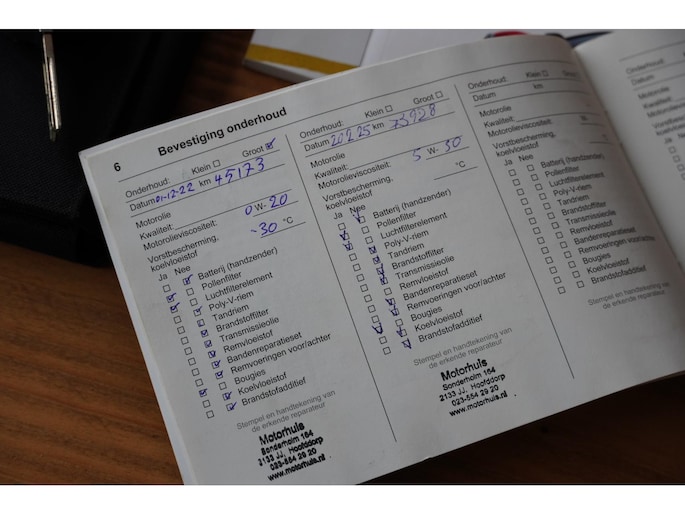 6 Bevestiging onderhoud
Onderhoud: Klein Groot
Datum 01-12-22 km 45173
Motorolie
Kwaliteit:
Motorolieviscositeit: 0 W- 20
Vorstbescherming,
koelvloeistof -30 °C
Ja Nee
Batterij (handzender)
Pollenfilter
Luchtfilterelement
Poly-V-riem
Tandriem
Brandstoffilter
Transmissieolie
Remvloeistof
Bandenreparatieset
Remvoeringen voor/achter
Bougies
Koelvloeistof
Brandstofadditief
Stempel en handtekening van
de erkende reparateur
Motorhuis
Sonderholm 164
2133 JJ, Hoofddorp
023-554 29 20
www.motorhuis.nl
Onderhoud: Klein Groot
Datum km
Motorolie
Kwaliteit:
Motorolieviscositeit: 5 W- 30
Vorstbescherming,
koelvloeistof °C
Ja Nee
Batterij (handzender)
Pollenfilter
Luchtfilterelement
Poly-V-riem
Tandriem
Brandstoffilter
Transmissieolie
Remvloeistof
Bandenreparatieset
Remvoeringen voor/achter
Bougies
Koelvloeistof
Brandstofadditief
Stempel en handtekening van
de erkende reparateur
Motorhuis
Sonderholm 164
2133 JJ, Hoofddorp
023-554 29 20
www.motorhuis.nl
Onderhoud: Klein Groot
Datum km
Motorolie
Kwaliteit:
Motorolieviscositeit: W-
Vorstbescherming,
koelvloeistof °C
Ja Nee
Batterij (handzender)
Pollenfilter
Luchtfilterelement
Poly-V-riem
Tandriem
Brandstoffilter
Transmissieolie
Remvloeistof
Bandenreparatieset
Remvoeringen voor/achter
Bougies
Koelvloeistof
Brandstofadditief
Stempel en handtekening van
de erkende reparateur